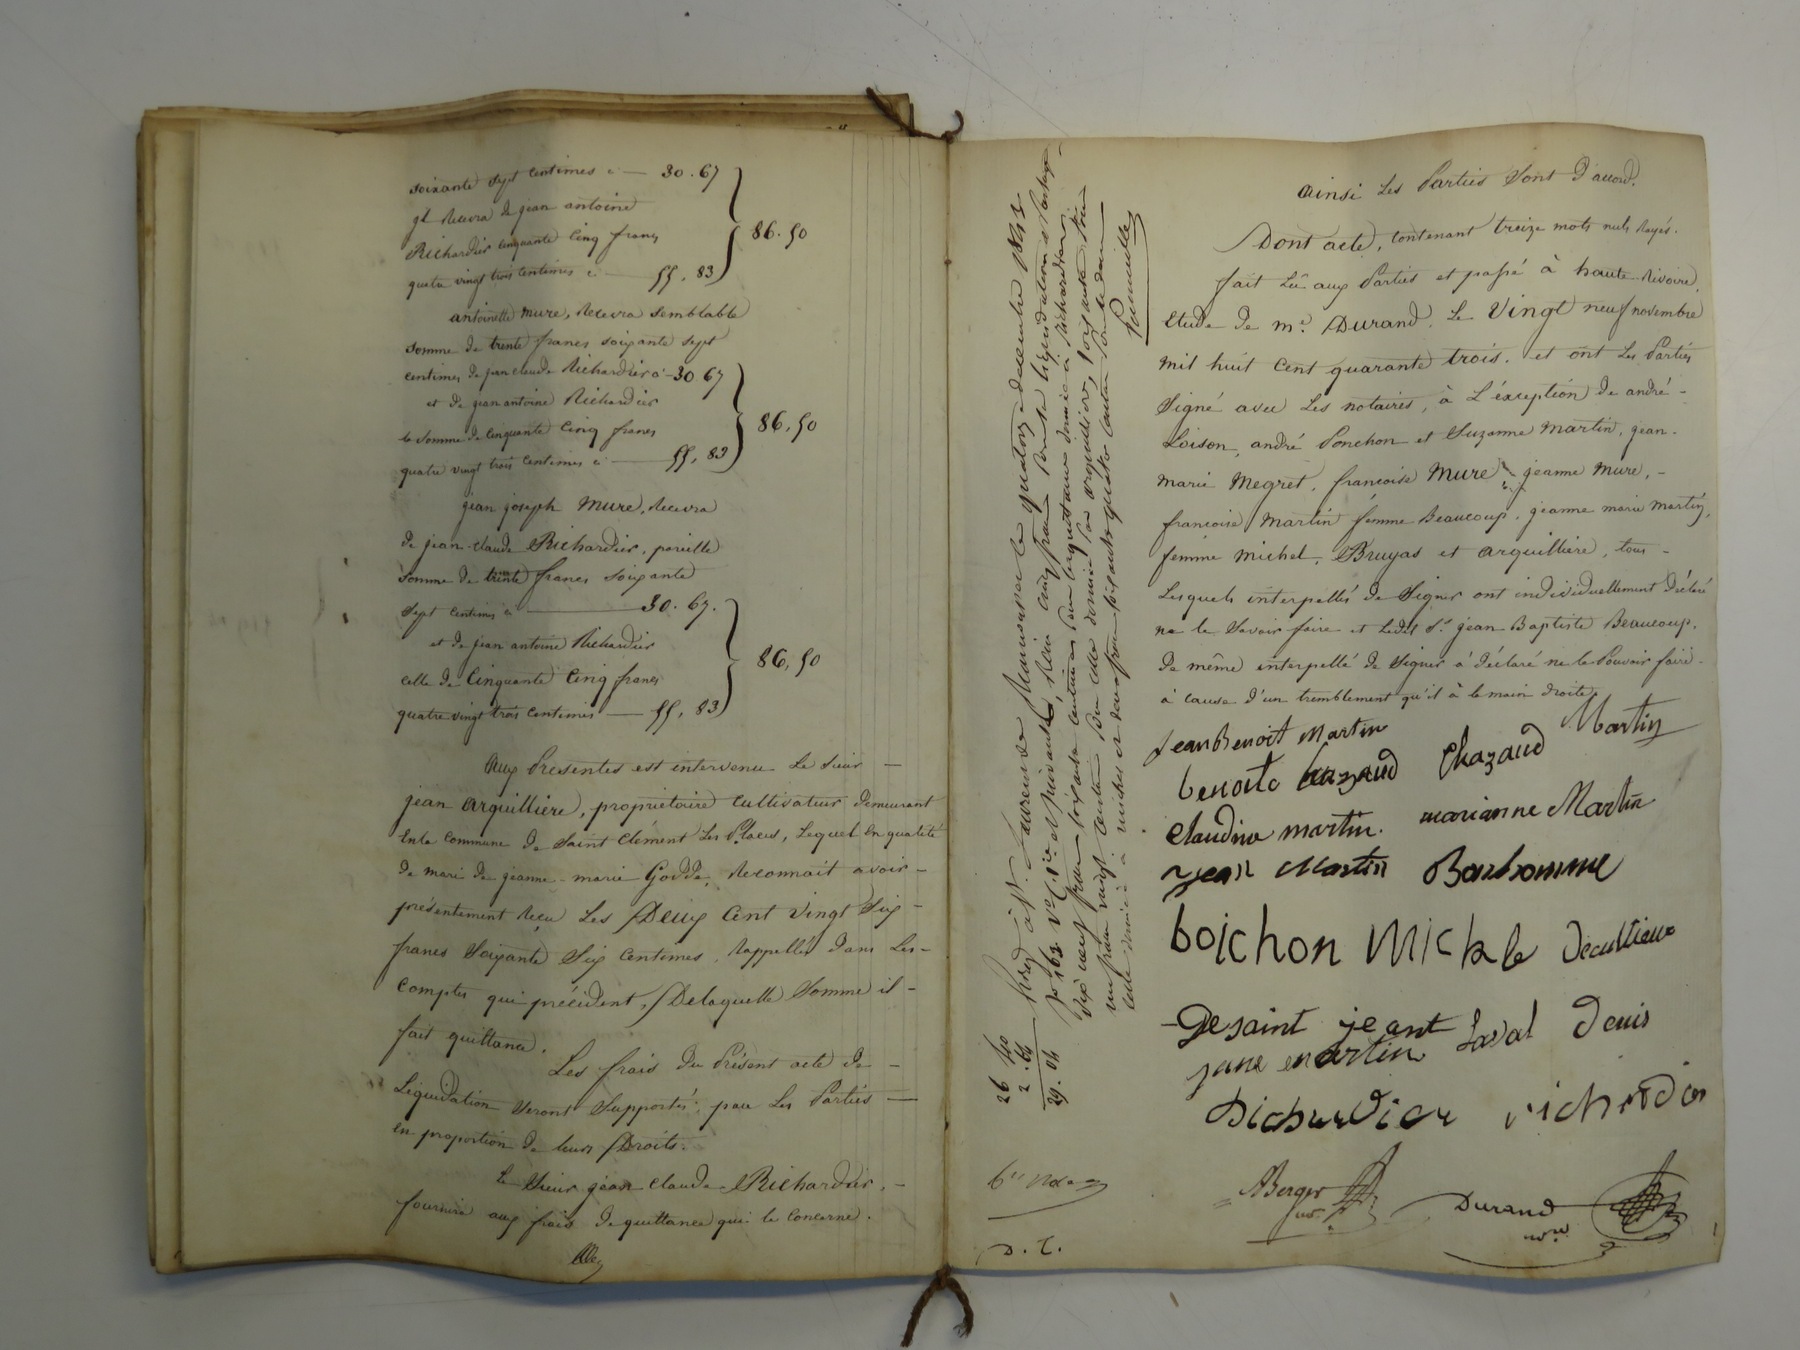 soixante sept centimes ci — 30.67
il Recevra de jean antoine
Richardier cinquante Cinq francs 86.50
quatre vingt trois centimes ci — 55,83
antoinette Mure, Recevra semblable
somme de trente francs soixante sept
centimes de jean claude Richardier ci - 30.67
et de jean antoine Richardier
la somme de Cinquante Cinq francs 86,50
quatre vingt trois Centimes ci — 55,83
jean joseph Mure, Recevra
de jean-claude Richardier, pareille
somme de trente francs soixante
sept centimes ci — 30.67.
et de jean antoine Richardier 86,50
celle de Cinquante Cinq francs
quatre vingt trois Centimes — 55,83
Aux Présentes est intervenu le sieur —
jean arquilliere, propriétaire cultivateur demeurant
en la commune de Saint Clément les Places, Lequel en qualité
de mari de jeanne-marie Godde, Reconnait avoir —
présentement Reçu Les Deux Cent vingt Six —
francs Soixante Six Centimes, Rappellés dans Les —
comptes qui précèdent, De laquelle Somme il —
fait quittance.
Les frais du Présent acte de —
Liquidation seront Supportés par Les Parties —
en proportion de leurs Droits.
Le Sieur jean claude Richardier, —
fournira aux frais de quittance qui le Concerne.
Enreg à St Laurent de Chamousset le quatorze decembre 1843
fo 163 Vo C. 1re et suivantes, Reçu cinq francs pour la liquidation et Partage
dix neuf francs soixante centimes pour la quittance donnée à Richardier
un franc vingt centimes pour celle donnée par arquilliere, soixante
26 40
2.64
29.04
D. C.
ainsi Les Parties sont d'accord.
Dont acte, contenant treize mots nuls Rayés.
fait Lû aux Parties et passé à haute Rivoire,
Etude de Me Durand, Le Vingt neuf novembre
mil huit Cent quarante trois. et ont Les Parties
Signé avec Les notaires, à L'éxception de andré —
Loison, andré Ponchon et Suzanne Martin, jean-
marie Megret, francoise Mure, jeanne Mure, —
francoise Martin femme Beaucoup, jeanne marie Martin,
femme Michel, Bruyas et arquilliere, tous —
Lesquels interpellés de Signer ont individuellement déclaré
ne le Savoir faire et Ledit Sr jean Baptiste Beaucoup,
de même interpellé de Signer a déclaré ne le Pouvoir faire —
à cause d'un tremblement qu'il à la main droite.
jean Benoit Martin Martin
benoite chazaud Chazaud
Claudine martin. marianne Martin
jean Martin Bonhomme
boichon Michle decultieux
Desaint jeant Laval denis
jane martin
Richardier richardier
ABerger nre Durand nre